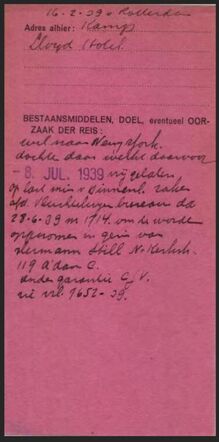 16-2-39 v Rotterdam
Adres alhier: Kamp
Lloyd Hotel
BESTAANSMIDDELEN, DOEL, eventueel OOR-
ZAAK DER REIS:
wil naar New York.
dochter daar werkt daarvoor
- 8. JUL. 1939 vrijgelaten
op last min v Binnenl. zaken
afd. Vluchtelingen bureau dd
28-6-39 no 1714. om te worden
opgenomen in gezin van
Hermann Still N. Kerkstr.
119 A'dam C.
onder garantie C.V.
zie vrl. 9652-39.